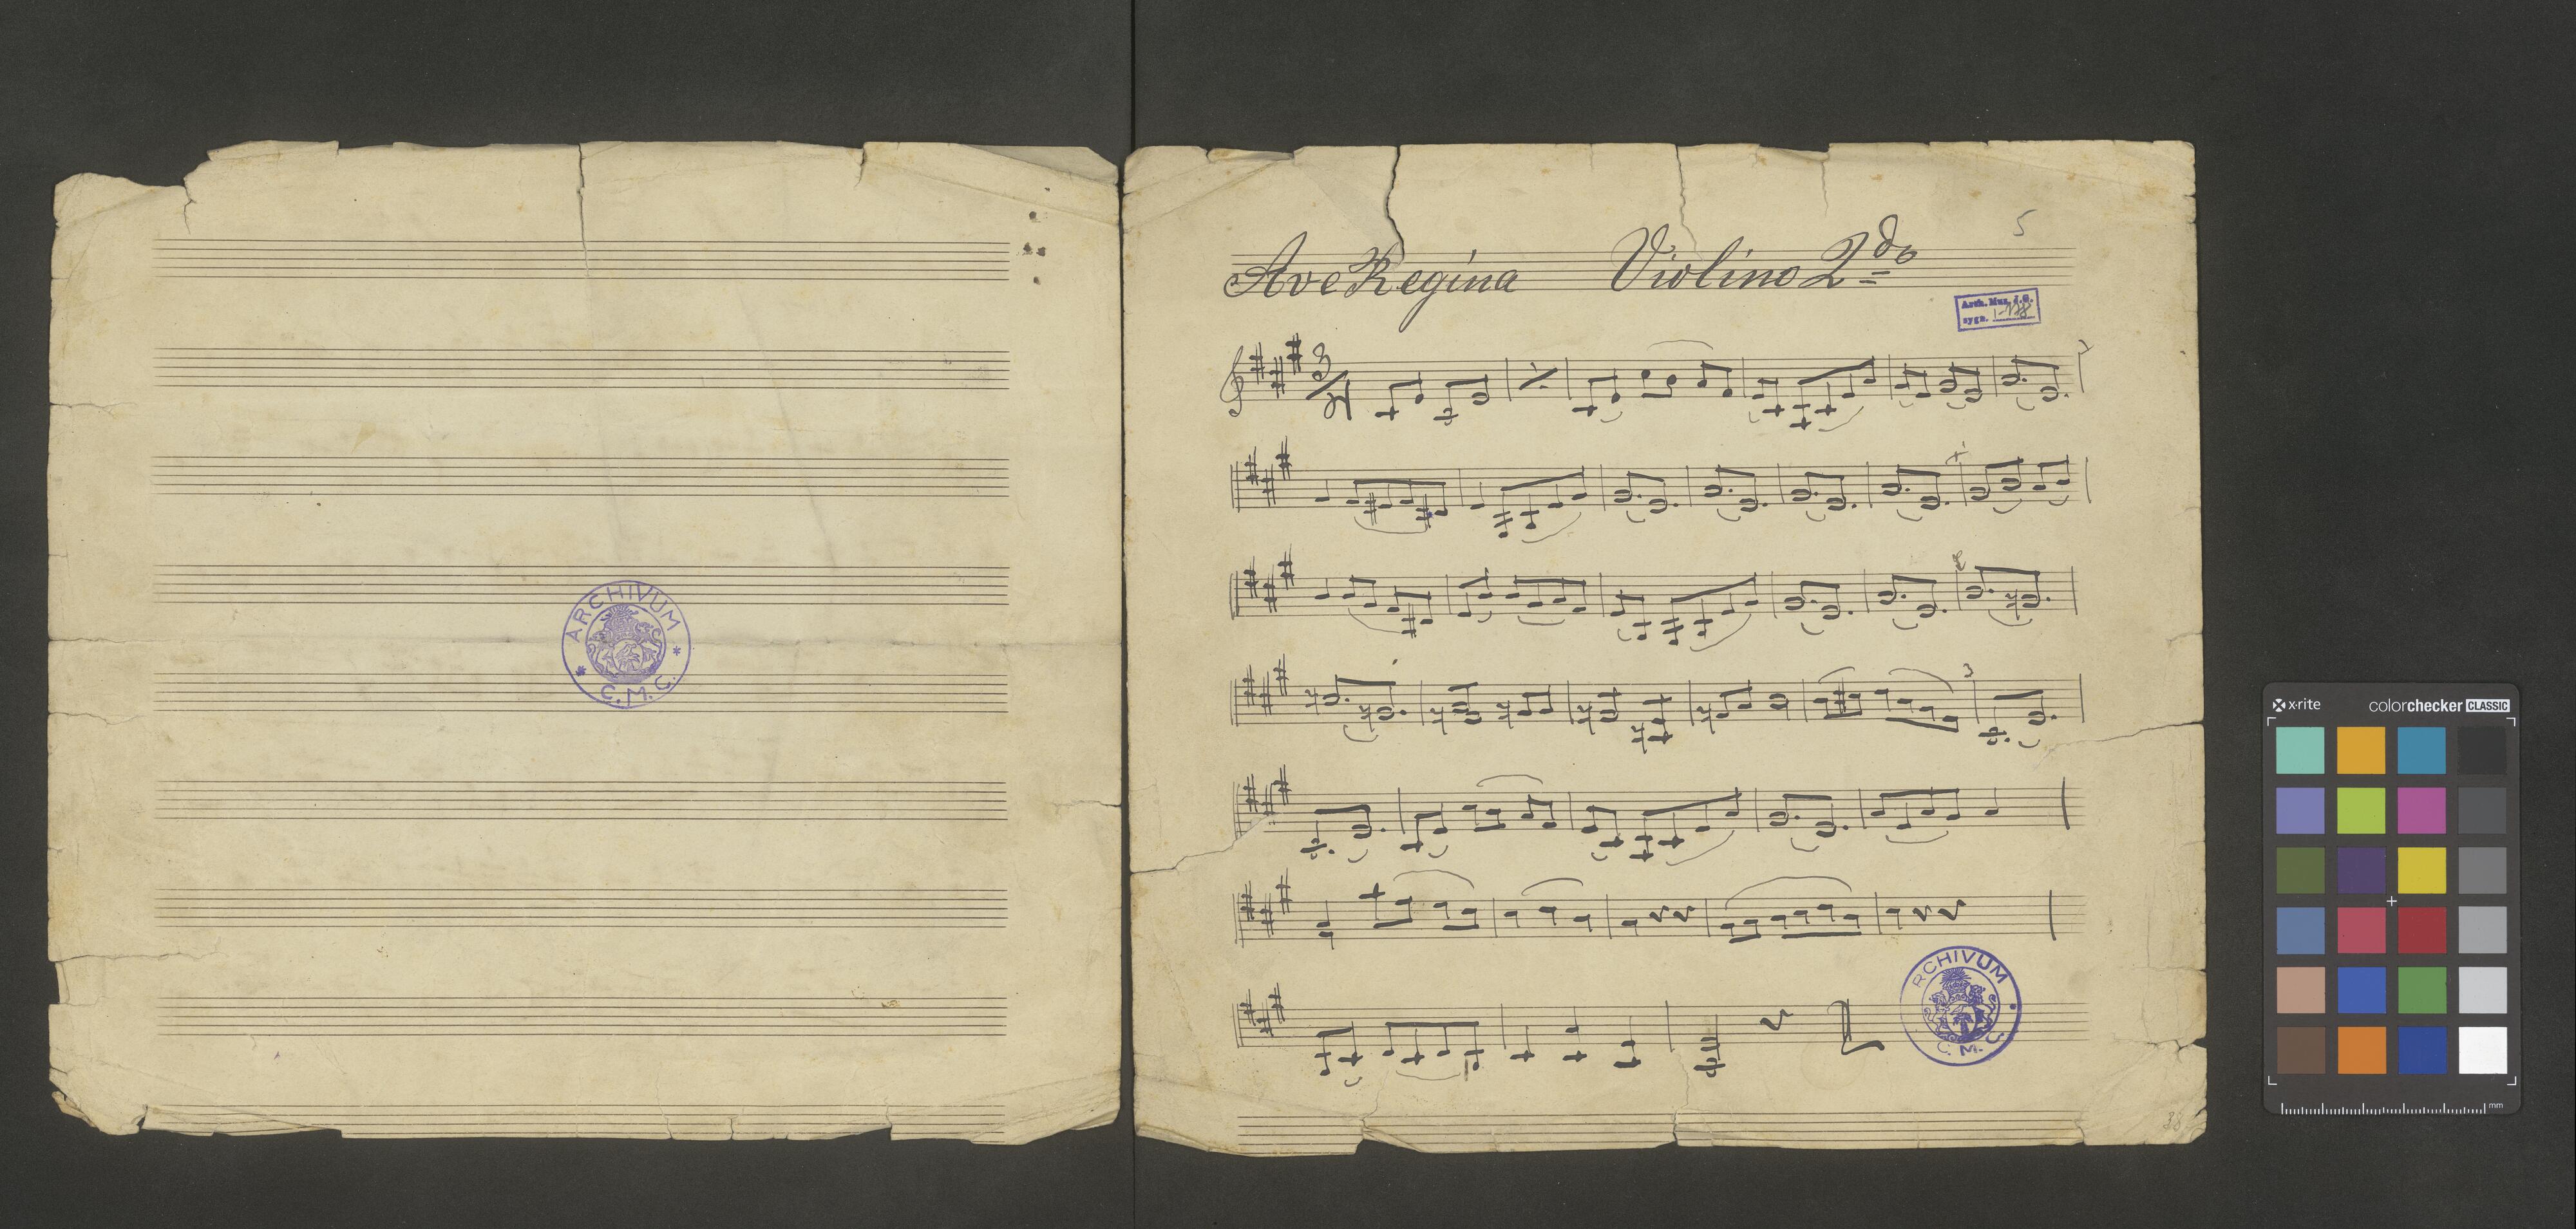 ARCHIVUM
C. M. C.
5
Ave Regina Violino 2do
Arch. Muz. J.G.
sygn. I-178
3
4
3
ARCHIVUM
C. M. C.
38
x-rite colorchecker CLASSIC
mm